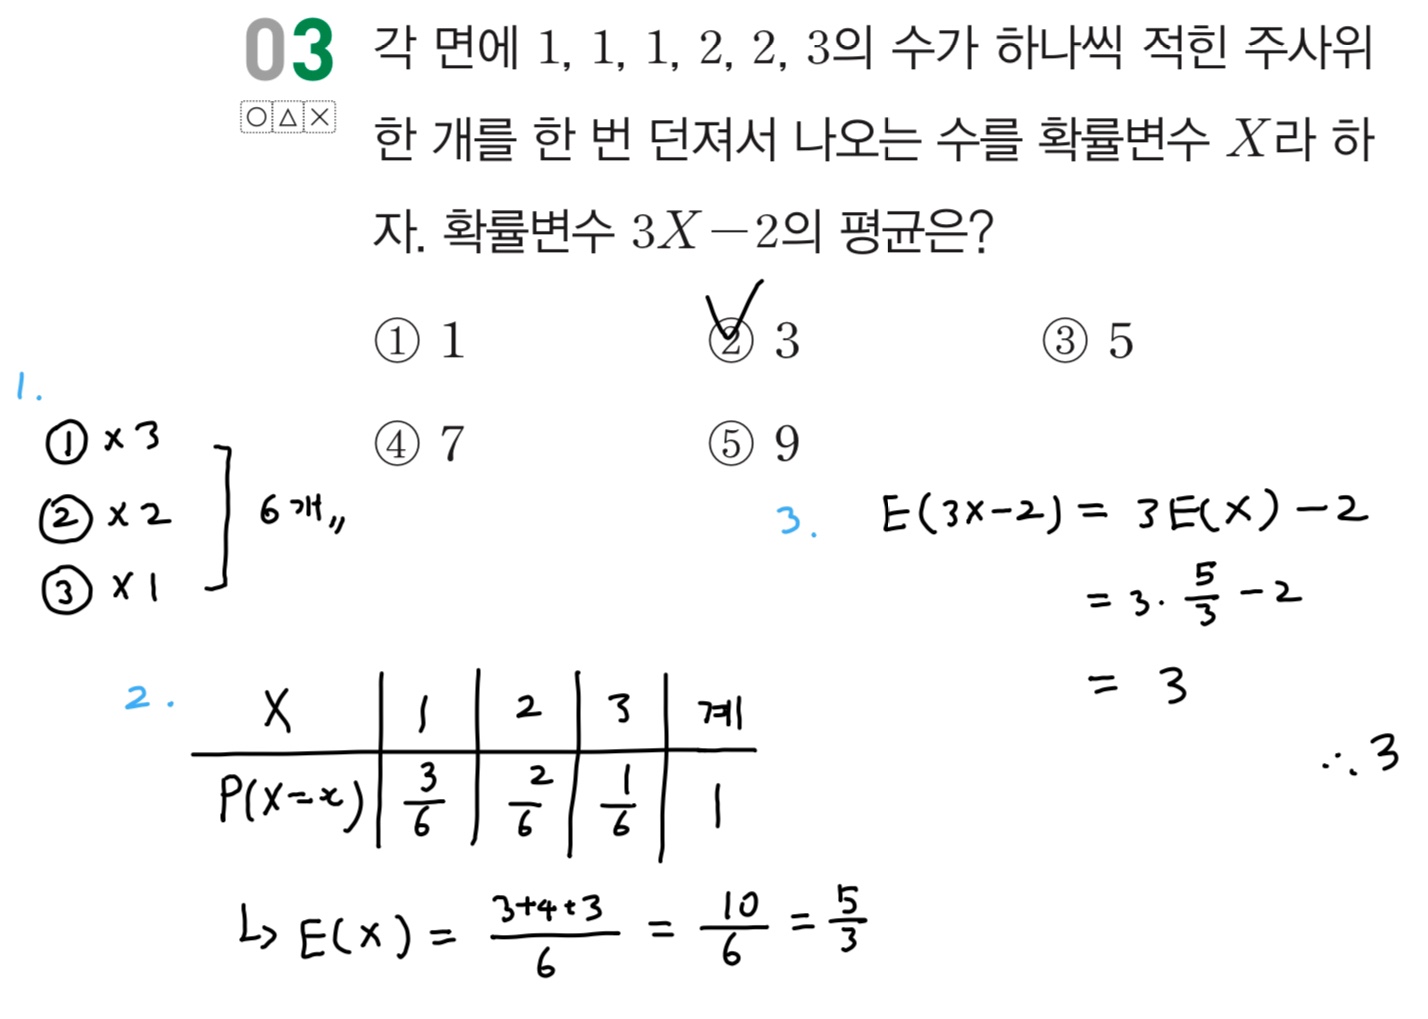 03 각 면에 1, 1, 1, 2, 2, 3의 수가 하나씩 적힌 주사위
○ △ × 한 개를 한 번 던져서 나오는 수를 확률변수 X라 하
자. 확률변수 3X-2의 평균은?
① 1 ② 3 ③ 5
④ 7 ⑤ 9
1.
① × 3
② × 2
③ × 1
6개〃
2.
X 1 2 3 계
P(X=x) 3/6 2/6 1/6 1
↳ E(X) = (3+4+3)/6 = 10/6 = 5/3
3. E(3X-2) = 3E(X)-2
= 3·5/3-2
= 3
∴ 3